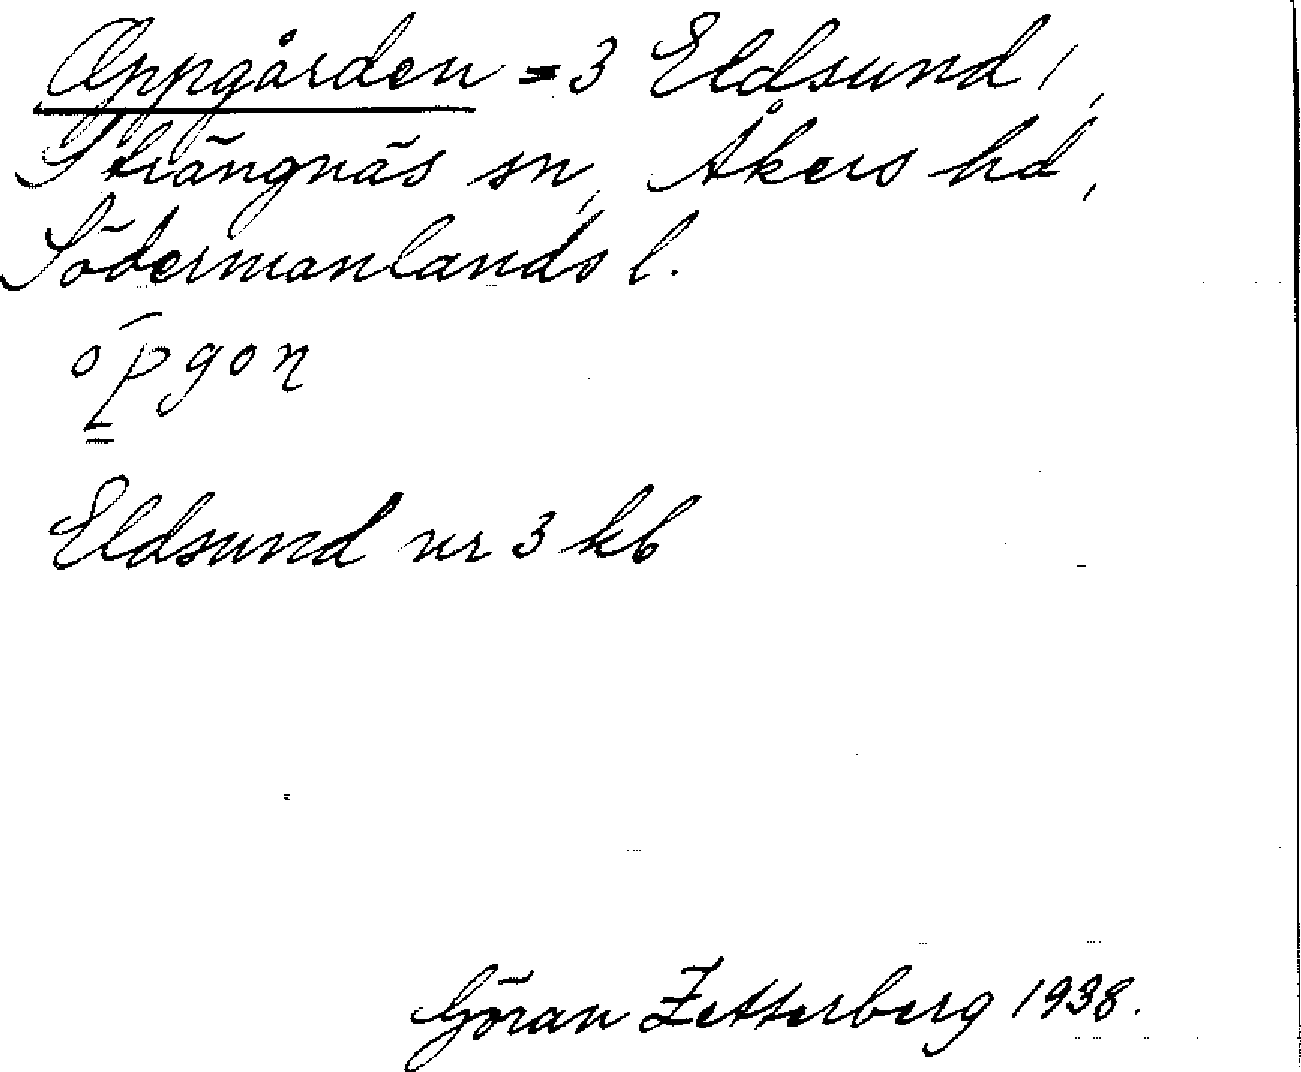 Oppgården = 3 Eldsund 1,
Strängnäs sn, Åkers hd,
Södermanlands l.
Eldsund nr 3 kb
Göran Zetterberg 1938.